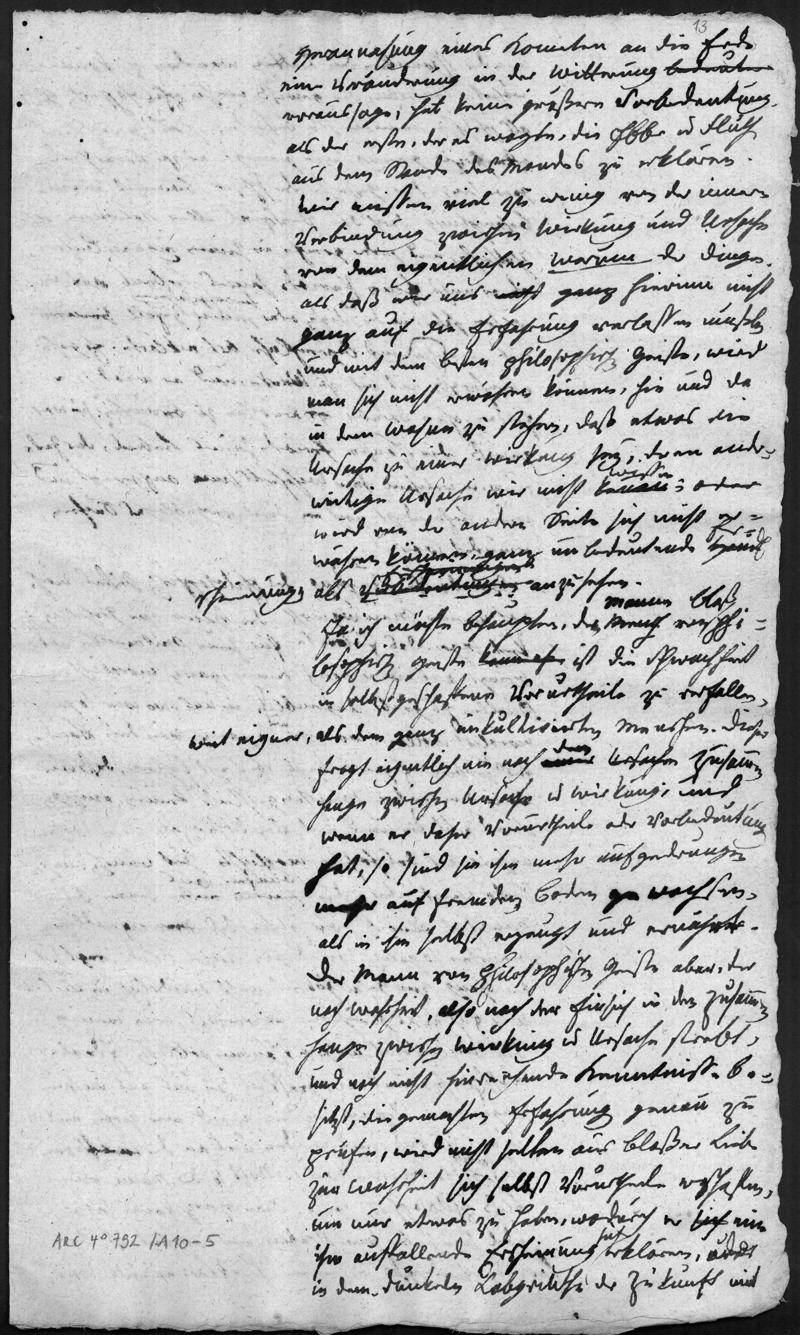 13
Herannahung eines Kometen an die Erde
eine Veränderung in der Witterung bedeute
voraussage, hat keine größere Vorbedeutung,
als der erste, der es wagte, die Ebbe u Fluth
aus dem Stande des Mondes zu erklären.
Wir wissen viel zu wenig von der innern
Verbindung zwischen Wirkung und Ursache
von dem eigentlichen warum der Dinge,
als daß wir uns nicht ganz hierinn nicht
ganz auf die Erfahrung verlassen müßten
und mit dem besten philosophisch Geiste, wird
man sich nicht erwehren können, hie und da
in dem Wahne zu stehen, daß etwas die
Ursache zu einer Wirkung sey, deren ander-
wichtige Ursache wir nicht kennen wissen; oder
wird von der andern Seite sich nicht er-
wehren können, ganz unbedeutende Er-
scheinungen als Vorbedeutungen anzusehen.
Ja ich möchte behaupten, der Mensch manne bloß von phi-
losophisch Geiste ist die Schwachheit
in selbstgeschaffene Vorurtheile zu verfallen,
weit eigner, als dem ganz unkultivierten Menschen. Dieser
fragt eigentlich nie nach dem Ursachen Zusammen
hange zwischen Ursache u Wirkung; und
wenn er daher Vorurtheile oder Vorbedeutung
hat, so sind sie ihm mehr aufgedrungen
mehr auf fremdem Boden gewachsen,
als in ihm selbst erzeugt und ernährt.
Der Mann von philosophischem Geiste aber, der
nach Wahrheit, also nach der Einsich in den Zusammen
hange zwischen Wirkung u Ursache strebt,
und noch nicht hinreichende Kenntnisse be-
sitzt, die gemachten Erfahrung genau zu
prüfen, wird nicht selten aus bloßer Liebe
zur Wahrheit sich selbst Vorurtheile erschaffen,
um nur etwas zu haben, wodurch er sich eine
ihm auffallende Erscheinung sich erklären,
in dem dunkeln Labyrinthe der Zukunft mit
ARC 4° 792 /A10-5